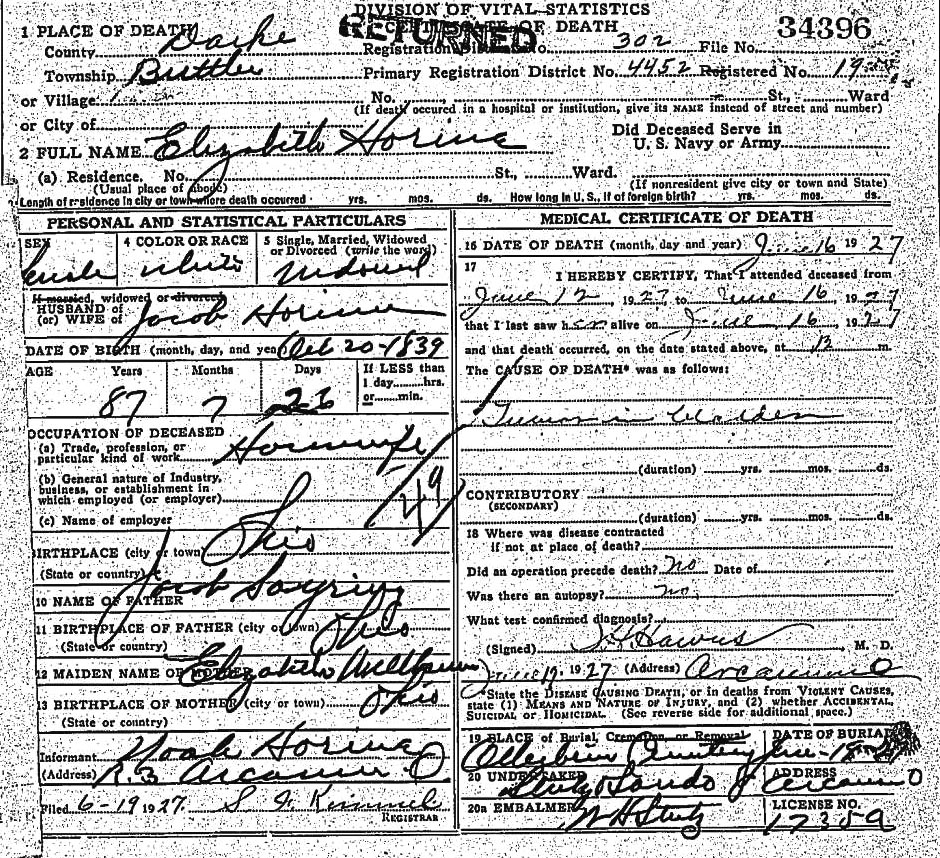 DIVISION OF VITAL STATISTICS
CERTIFICATE OF DEATH
RETURNED
34396
1 PLACE OF DEATH
County Darke Registration District No. 302 File No.
Township Buttler Primary Registration District No. 4452 Registered No. 19
or Village No. St., Ward
(If death occured in a hospital or institution, give its NAME instead of street and number)
or City of
Did Deceased Serve in
U. S. Navy or Army
2 FULL NAME Elizabeth Horine
(a) Residence. No. St., Ward.
(Usual place of abode) (If nonresident give city or town and State)
Length of residence in city or town where death occurred yrs. mos. ds. How long in U. S., if of foreign birth? yrs. mos. ds.
PERSONAL AND STATISTICAL PARTICULARS
SEX 4 COLOR OR RACE 5 Single, Married, Widowed
or Divorced (write the word)
Female White Widowed
If married, widowed or divorced
HUSBAND of
(or) WIFE of Jacob Horine
DATE OF BIRTH (month, day, and year) Oct 20-1839
AGE Years Months Days If LESS than
1 day hrs.
or min.
87 7 26
OCCUPATION OF DECEASED
(a) Trade, profession, or
particular kind of work Housewife
(b) General nature of Industry,
business, or establishment in
which employed (or employer)
(c) Name of employer
BIRTHPLACE (city or town) Ohio
(State or country)
10 NAME OF FATHER Jacob
11 BIRTHPLACE OF FATHER (city or town) Ohio
(State or country)
12 MAIDEN NAME OF MOTHER Elizabeth
13 BIRTHPLACE OF MOTHER (city or town) Ohio
(State or country)
Informant Noah Horine
(Address) R.3 Arcanum O
Filed 6-19 1927. Kimmel
REGISTRAR
MEDICAL CERTIFICATE OF DEATH
16 DATE OF DEATH (month, day and year) June 16 1927
17
I HEREBY CERTIFY, That I attended deceased from
June 12, 1927 to June 16, 1927
that I last saw her alive on June 16, 1927
and that death occurred, on the date stated above, at 12 m.
The CAUSE OF DEATH* was as follows:
Tumor in bladder
(duration) yrs. mos. ds.
CONTRIBUTORY
(SECONDARY)
(duration) yrs. mos. ds.
18 Where was disease contracted
if not at place of death?
Did an operation precede death? No Date of
Was there an autopsy? no
What test confirmed diagnosis?
(Signed) Hawes M. D.
June 17, 1927 (Address) Arcanum O
State the DISEASE CAUSING DEATH, or in deaths from VIOLENT CAUSES,
state (1) MEANS AND NATURE OF INJURY, and (2) whether ACCIDENTAL,
SUICIDAL or HOMICIDAL. (See reverse side for additional space.)
19 PLACE of Burial, Cremation, or Removal DATE OF BURIAL
Otterbein Cemetery June-18
20 UNDERTAKER ADDRESS
Stutz Arcanum O
20a EMBALMER LICENSE NO.
W H Stutz 1235a